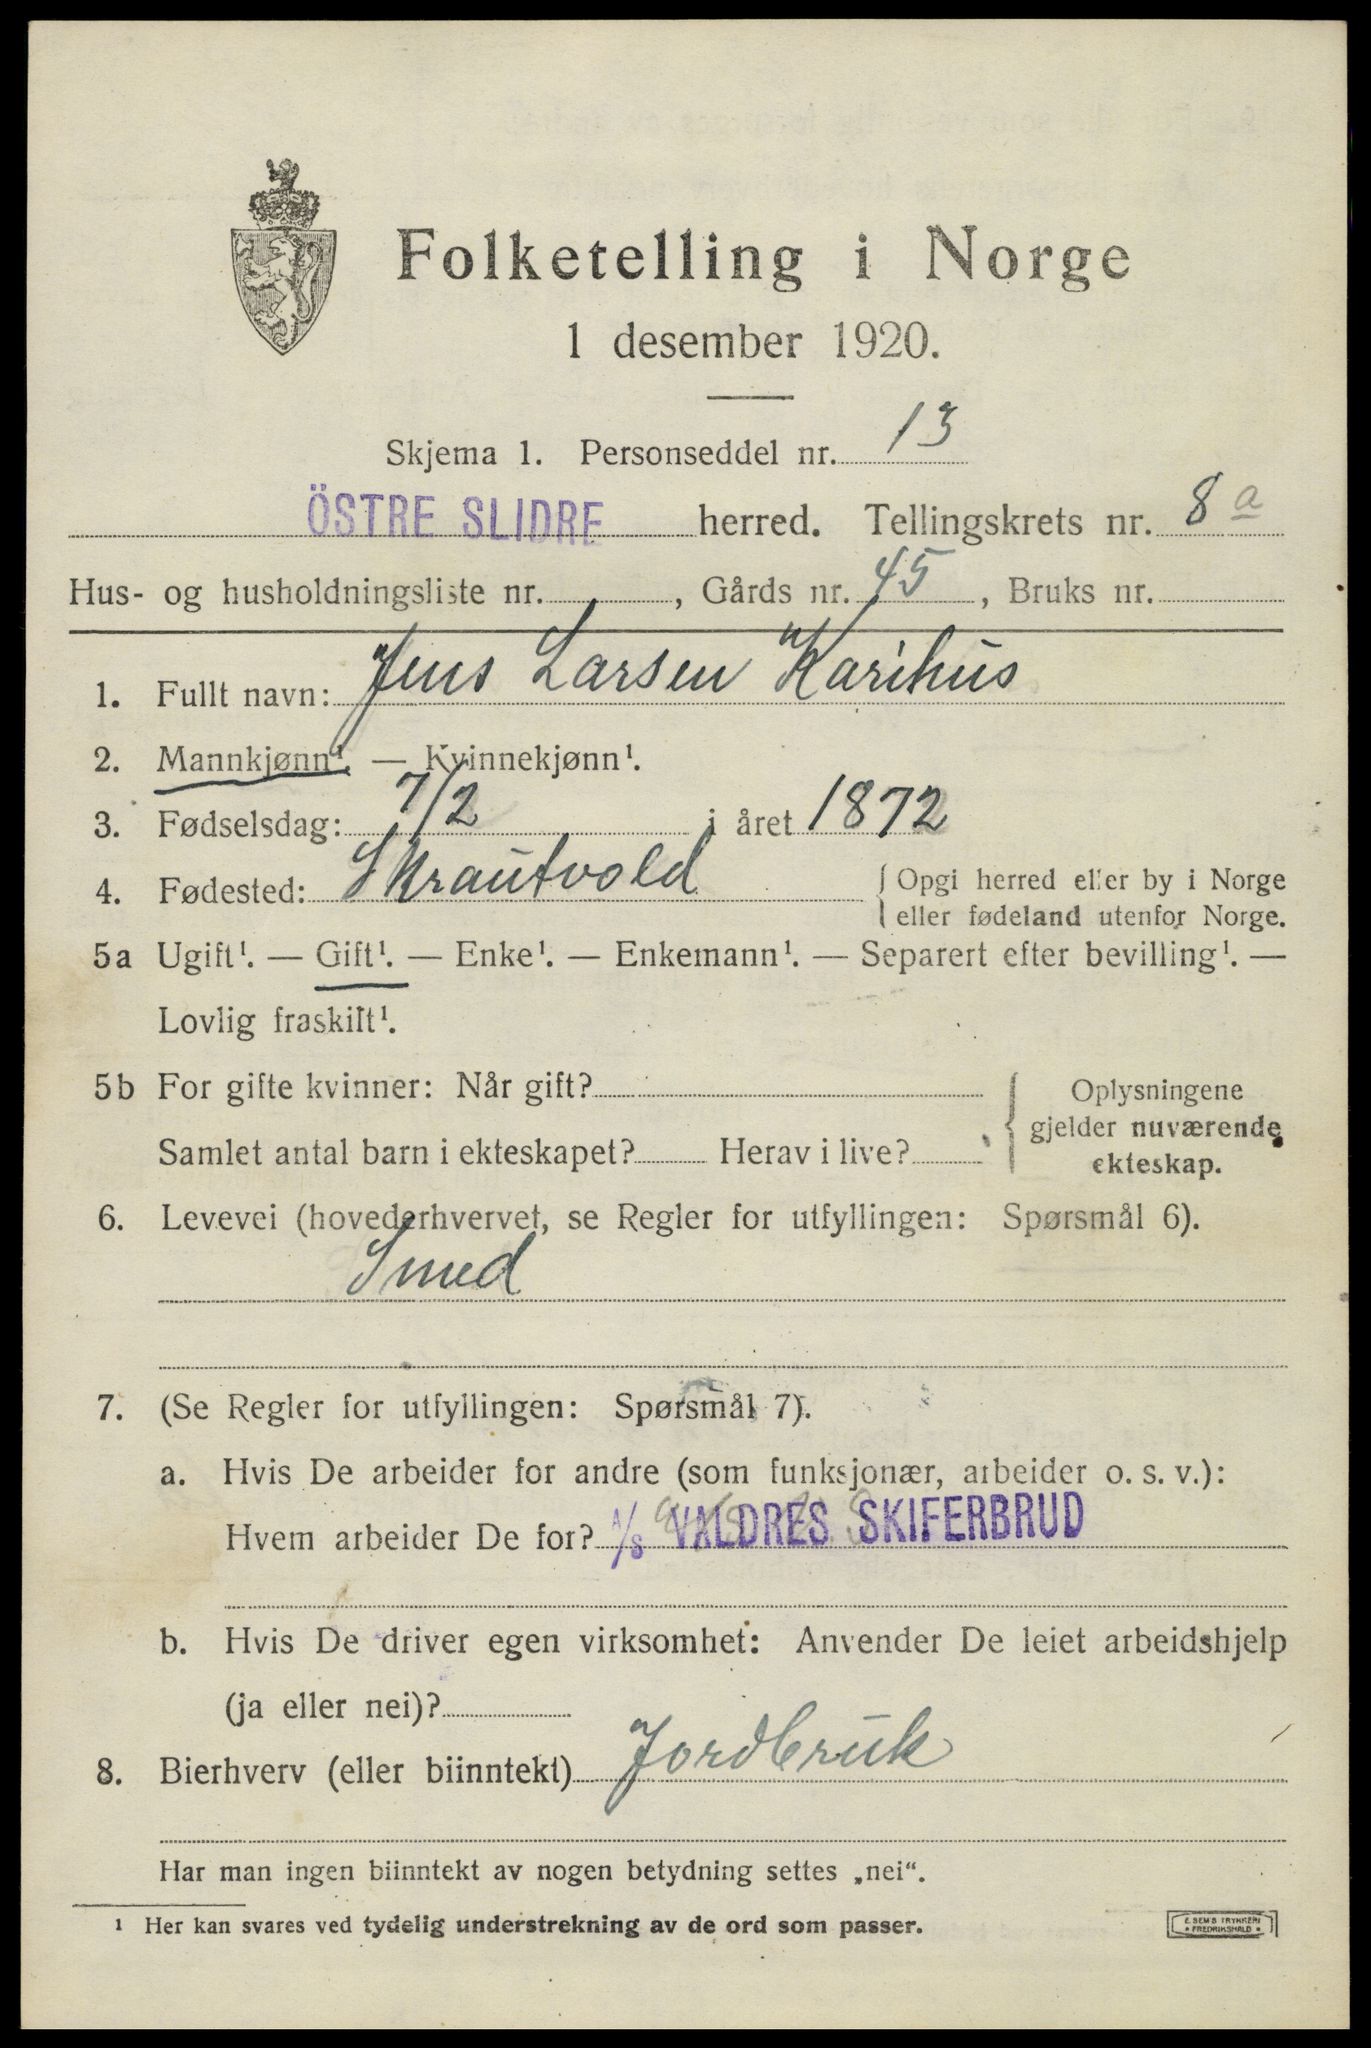 Folketelling i Norge
1 desember 1920.
Skjema 1. Personseddel nr. 13
ÖSTRE SLIDRE herred. Tellingskrets nr. 8 a
Hus- og husholdningsliste nr. , Gårds nr. 45 , Bruks nr.
1. Fullt navn: Jens Larsen Karihus
2. Mannkjønn¹. — Kvinnekjønn¹.
3. Fødselsdag: 7/2 i året 1872
4. Fødested: Skrautvold { Opgi herred eller by i Norge
eller fødeland utenfor Norge.
5a Ugift¹. — Gift¹. — Enke¹. — Enkemann¹. — Separert efter bevilling¹. —
Lovlig fraskilt¹.
5b For gifte kvinner: Når gift?
Samlet antal barn i ekteskapet? Herav i live?
{ Oplysningene
gjelder nuværende
ekteskap.
6. Levevei (hovederhvervet, se Regler for utfyllingen: Spørsmål 6).
Smed
7. (Se Regler for utfyllingen: Spørsmål 7).
a. Hvis De arbeider for andre (som funksjonær, arbeider o. s. v.):
Hvem arbeider De for? A/S VALDRES SKIFERBRUD
b. Hvis De driver egen virksomhet: Anvender De leiet arbeidshjelp
(ja eller nei)?
8. Bierhverv (eller biinntekt) Jordbruk
Har man ingen biinntekt av nogen betydning settes „nei“.
¹ Her kan svares ved tydelig understrekning av de ord som passer.
E. SEM'S TRYKKERI
FREDRIKSHALD